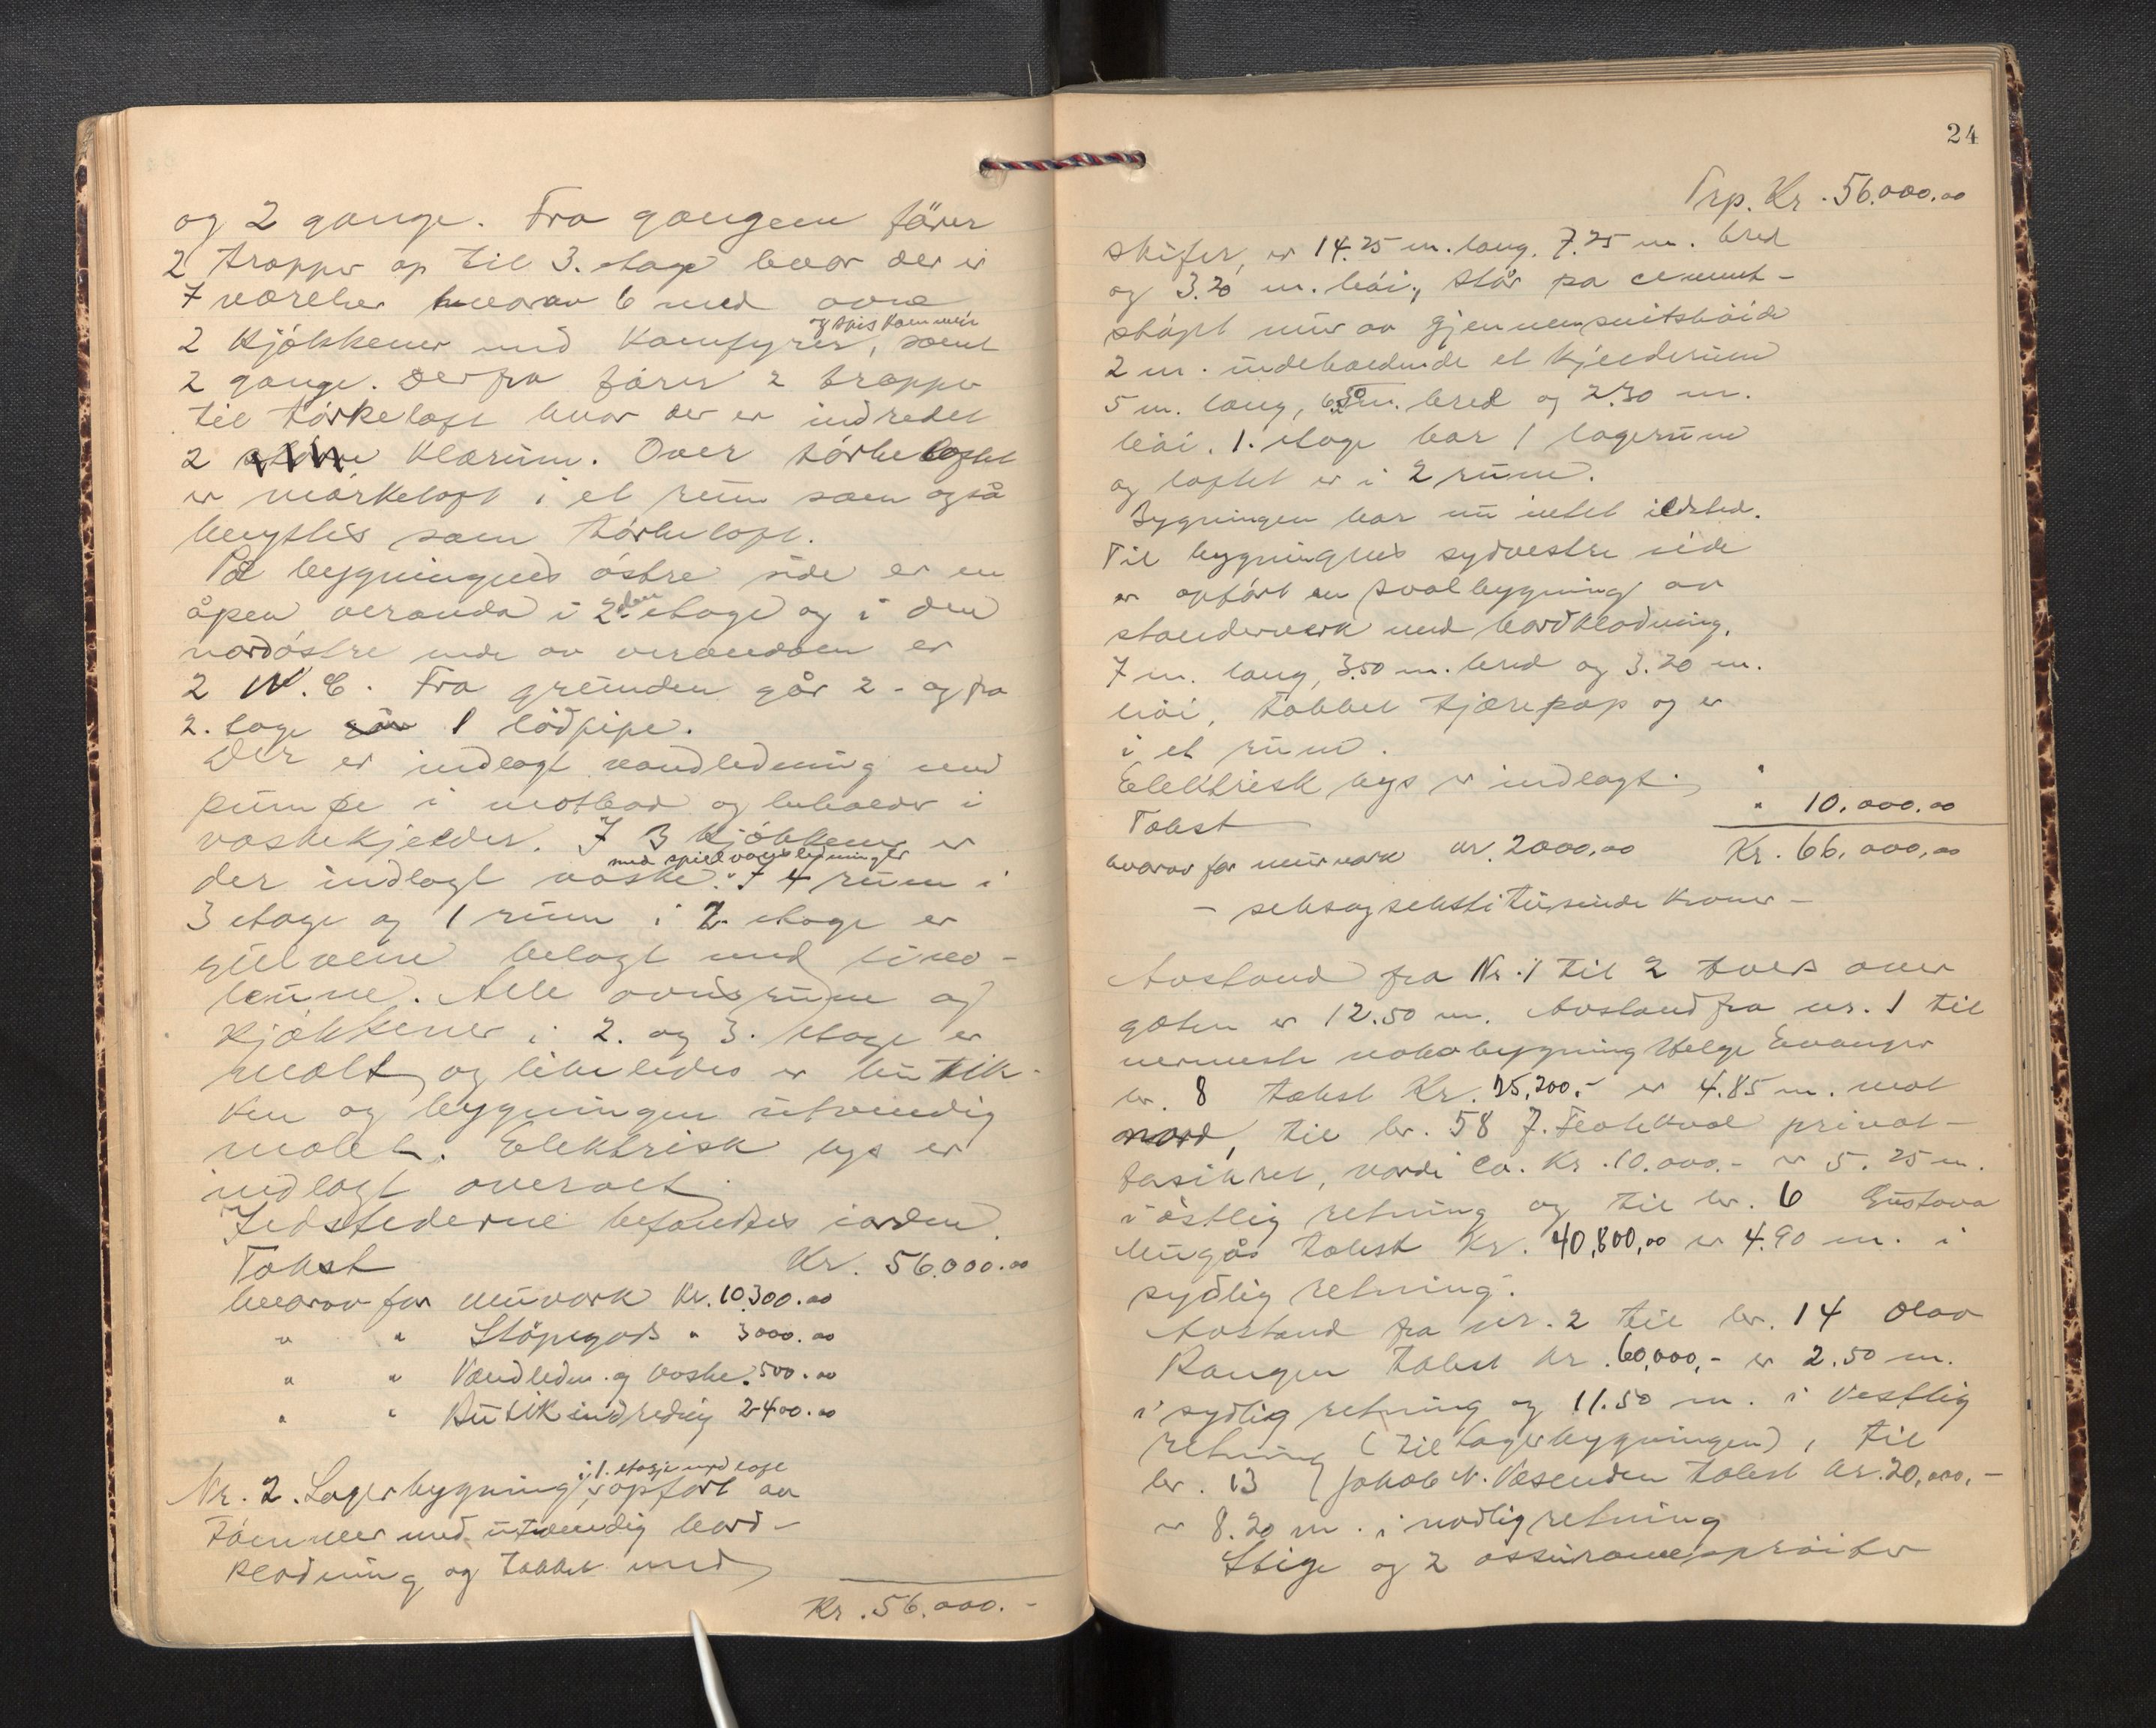 og 2 gange. Fra gangen fører
2 trapper op til 3. etage hvor der er
7 værelser hvorav 6 med ovne
og spiskammer
2 kjøkkener med komfyrer, samt
2 gange. Derfra fører 2 trapper
til tørkeloft hvor der er indredet
2 klærum. Over tørkeloftet
er mørkeloft i et rum som også
benyttes som tørkeloft.
På bygningens østre side er en
åpen veranda i 2den etage og i den
nordøstre ende av verandaen er
2 W.C. Fra grunden går 2 - og fra
2. etage 1 lødpipe.
Der er indlagt vandledning med
pumpe i motbad og beholder i
vaskekjelder. I 3 kjøkkener er
med spillvandsledninger
der indlagt vaske. I 4 rum i
3 etage og 1 rum i 2. etage er
gulvene belagt med lino-
leume. Alle ovnsrum og
kjøkkener i 2. og 3. etage er
malt og likeledes er butik-
ken og bygningen utvendig
malet. Elektrisk lys er
indlagt overalt.
Ildstederne befandtes iorden.
Takst Kr. 56.000.00
hvorav for murverk Kr. 10.300.00
" " Støpegods " 3000.00
" " Vandledn. og vaske " 500.00
" " Butikindredning 2400.00
i 1. etasje med loft
Nr. 2. Lagerbygning, opført av
Tømmer med utvendig bord-
klædning og tækket med
Kr. 56.000.-
24
Trp. Kr. 56.000.00
skifer, er 14.25 m. lang, 7.25 m. bred
og 3.20 m. høi, står på cement-
støpt mur av gjennemsnitshøide
2 m. indeholdende et kjelderrum
5 m. lang, 6.50 m. bred og 2.30 m.
høi. 1. etage har 1 lagerrum
og loftet er i 2 rum.
Bygningen har nu intet ildsted.
Til bygningens sydvestre side
er opført en svalbygning av
standerverk med bordklædning,
7 m. lang, 3.50 m. bred og 3.20 m.
høi, tækket tjærepap og er
i et rum.
Elektrisk lys er indlagt.
Takst " 10.000.00
hvorav for murverk kr. 2000,00 Kr. 66.000,00
- seksogsekstitusinde kroner -
Avstand fra Nr. 1 til 2 tvers over
gaten er 12.50 m. Avstand fra nr. 1 til
nermeste nabobygning Helge Evanger
br. 8 takst Kr. 25,200.- er 4.85 m. mot
nord, til br. 58 J. privat-
fasikret, verdi ca. Kr. 10.000.- er 5.25 m.
i østlig retning og til br. 6 Gustava
takst Kr. 40,800,00 er 4.90 m. i
sydlig retning.
Avstand fra nr. 2 til br. 14 Olav
Rangen takst kr. 60,000,- er 2.50 m.
i sydlig retning og 11.50 m. i vestlig
retning (til lagerbygningen), til
br. 13 Jakob N. Væsenden takst kr. 20,000,-
er 8.20 m. i nodlig retning
Stige og 2 assurancesprøiter